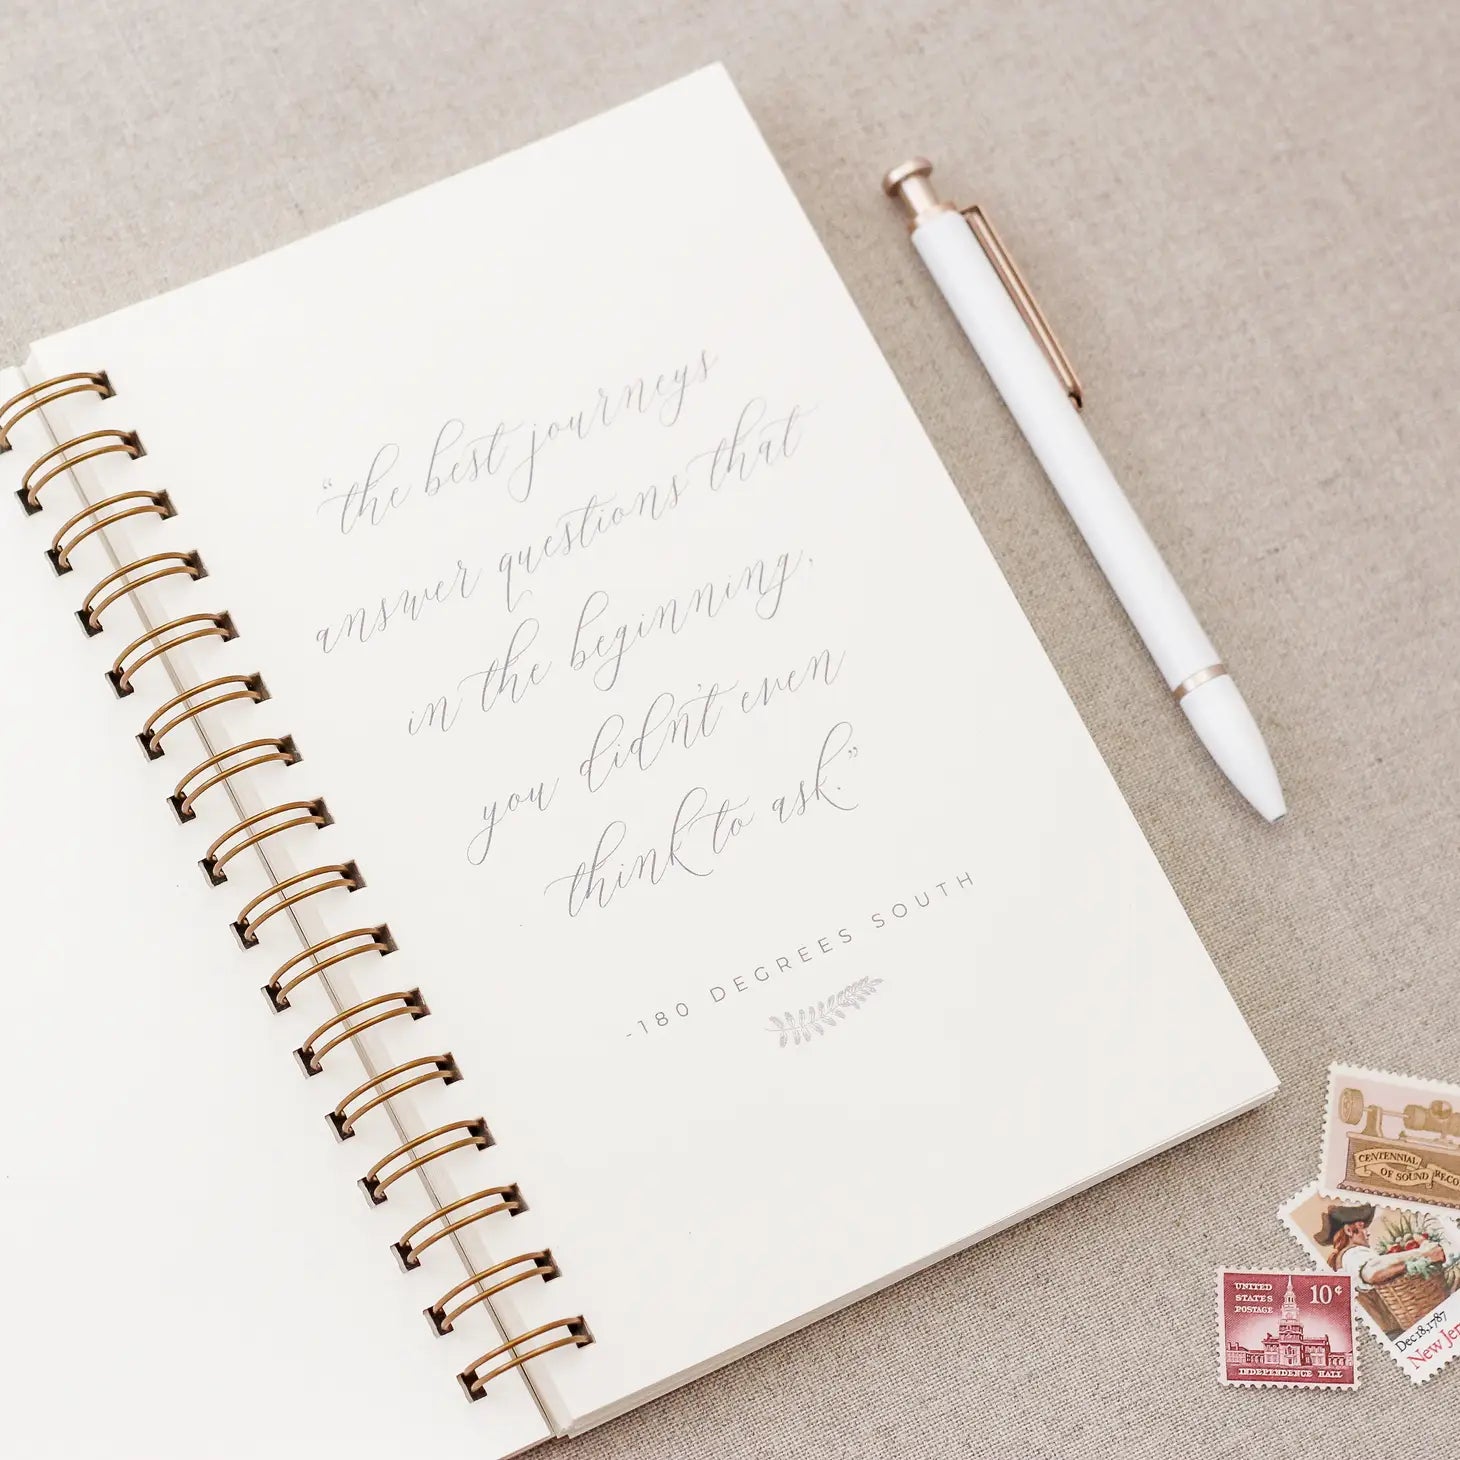 “the best journeys
answer questions that
in the beginning,
you didn't even
think to ask.”
-180 DEGREES SOUTH
CENTENNIAL
OF SOUND
UNITED
STATES
POSTAGE
10¢
INDEPENDENCE HALL
Dec 18, 1787
New